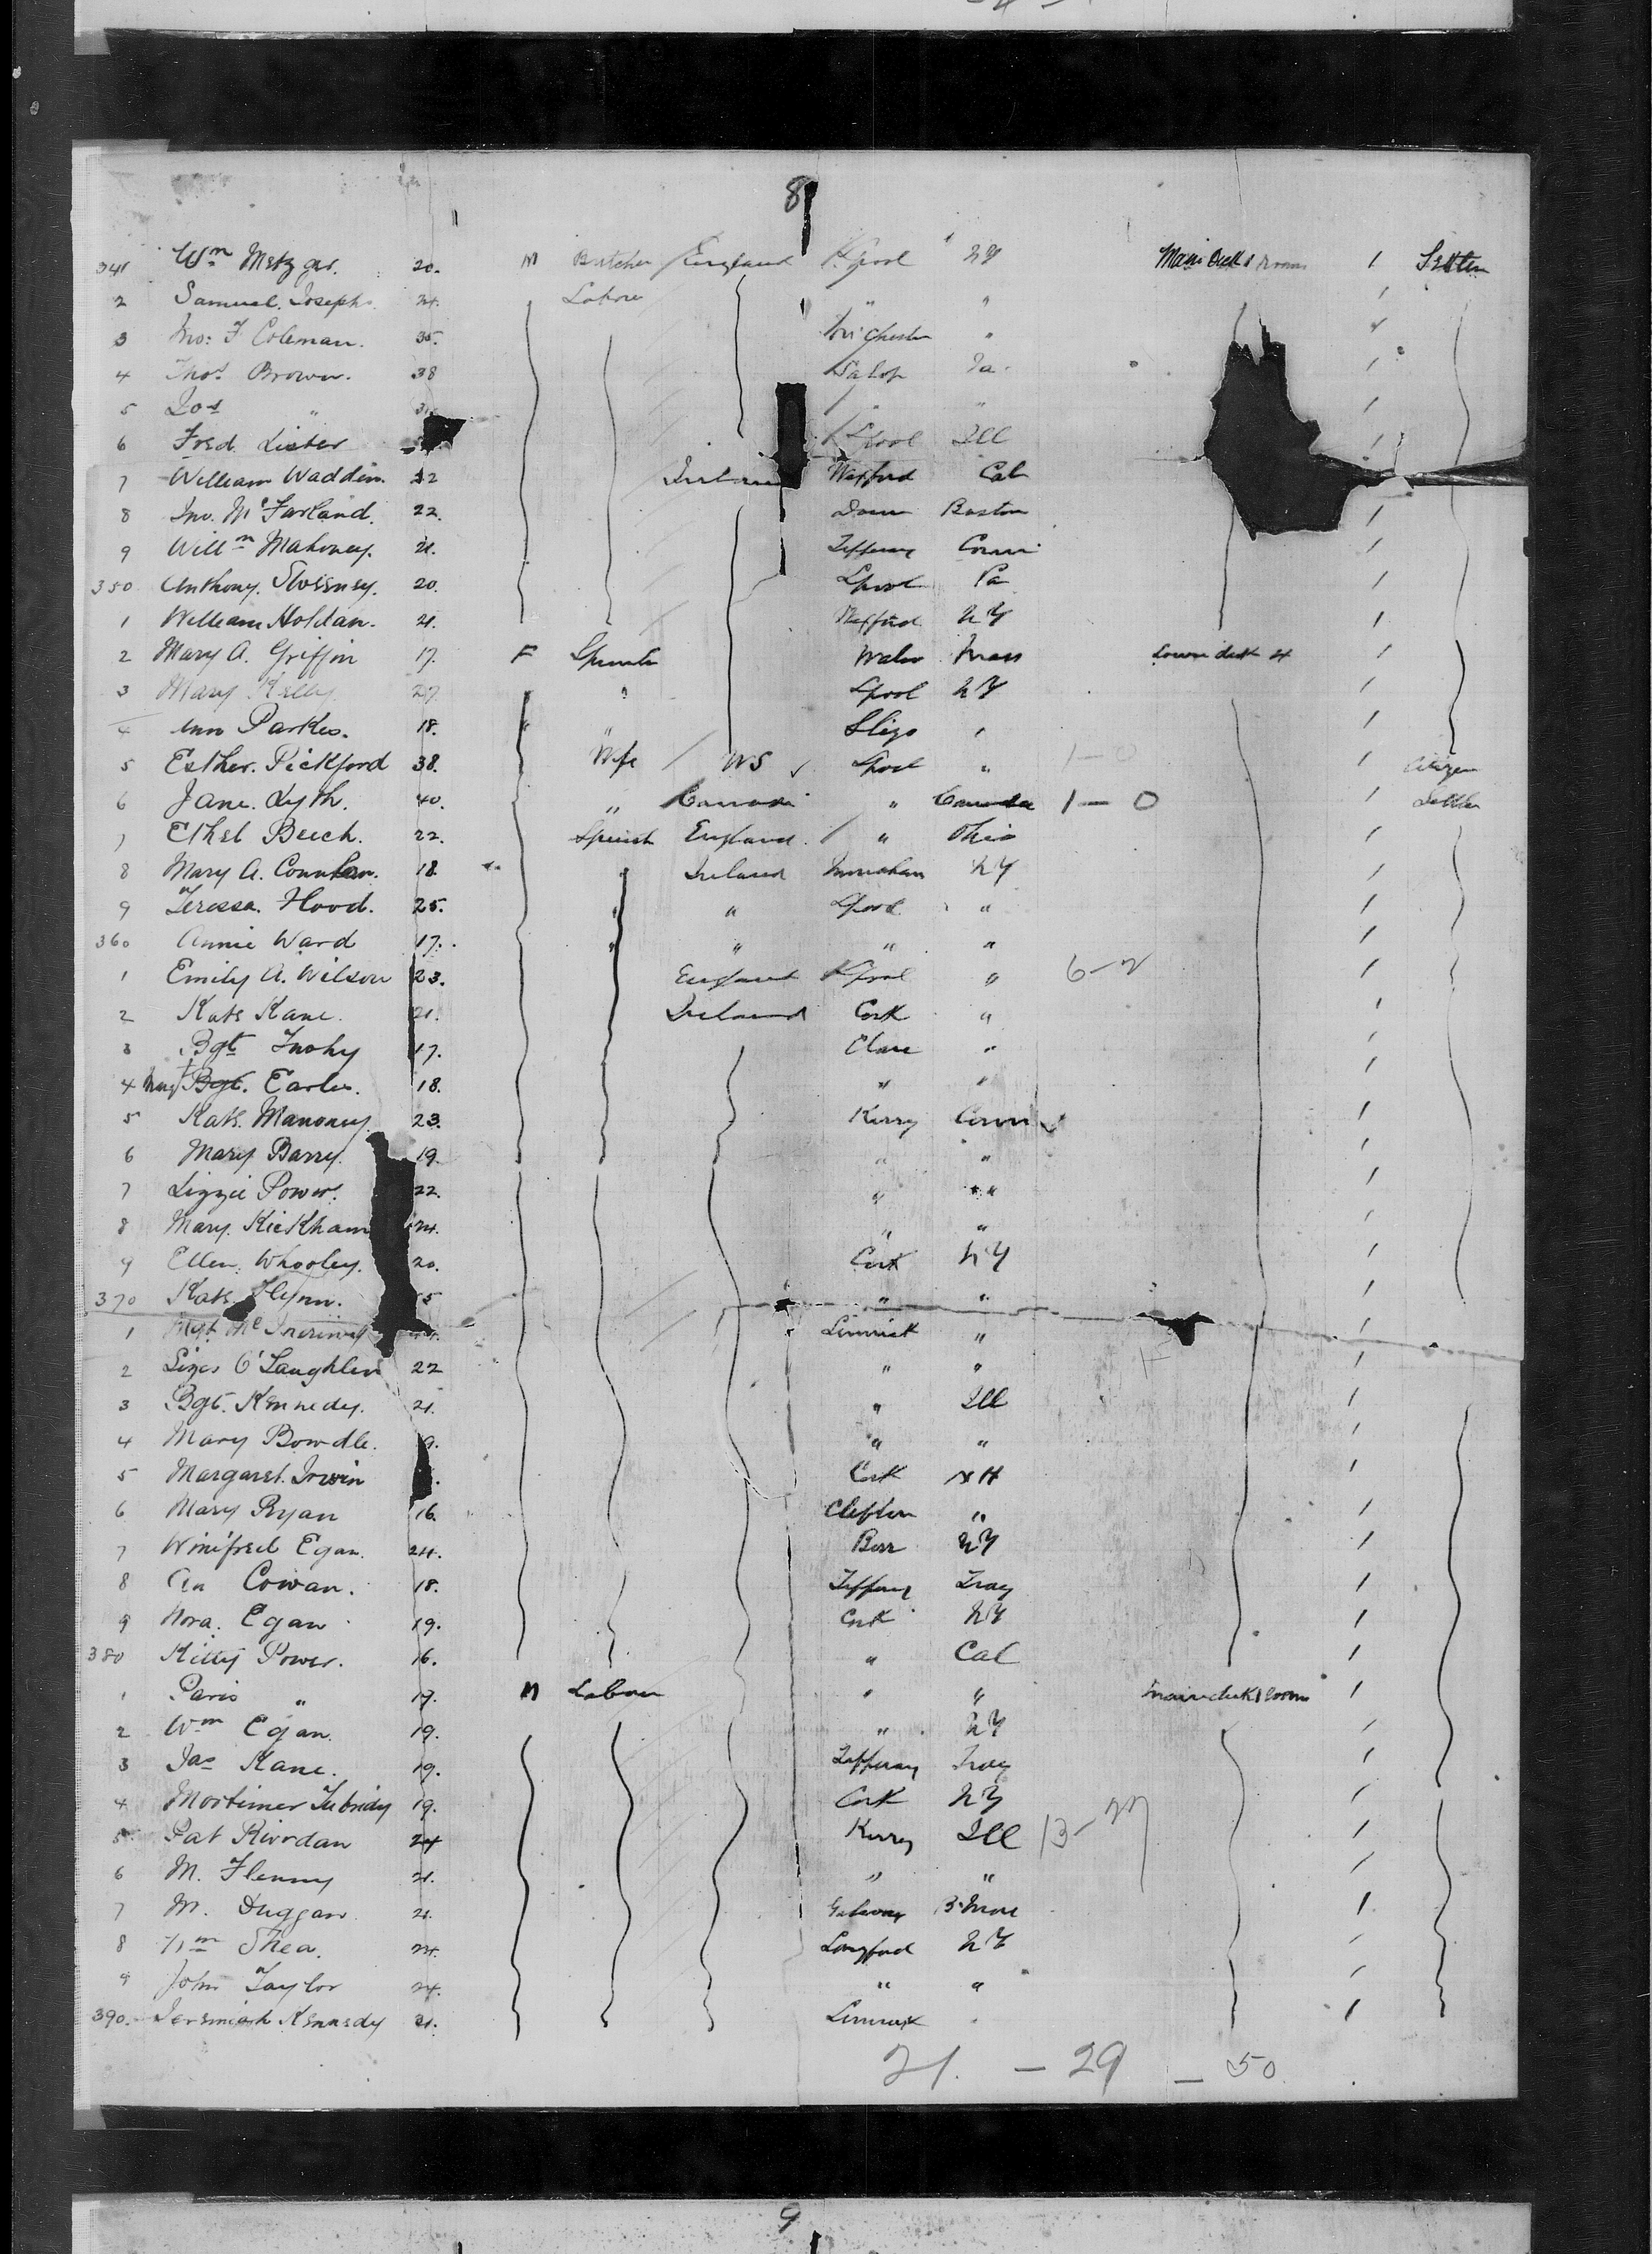 8
341 Wm Metzger. 20. M Butcher England L.pool NY Main Deck 1 Room 1 Settler
2 Samuel Joseph 24. Labore " "
3 Jno: F Coleman. 35. "
4 Thos Brown. 38 Salop Ia.
5 Jos "
6 Fred. Lister L'pool Ill
7 William Waddin. 22 Ireland Wexford Cal
8 Jno. McFarland. 22. Down Boston 1
9 Willm Mahoney. 21. Tipperary Conn 1
350 Anthony. Sweeney. 20. Lpool Pa 1
1 William Holdan. 21. Wexford NY 1
2 Mary A. Griffin 17. F Spinster Mass Lower deck 4 1
3 Mary Kelly 27 " Lpool NY 1
4 Ann Parkes. 18. " " Sligo " 1
5 Esther. Pickford 38. Wife / US ✓ Lpool " 1-0 1 Citizen
6 Jane. Lyth. 40. " Canada " Canada 1-0 1 Settler
7 Ethel Beech. 22. Spinst England / " Ohio 1
8 Mary A. 18. Ireland Monahan NY 1
9 Teressa. Hood. 25. " " Lpool " 1
360 Annie Ward 17. " " " " 1
1 Emily A. Wilson 23. England Lpool " 6-2 1
2 Kate Kane. 21. Ireland Cork " 1
3 Bgt Tuohy 17. Clare " 1
4 Bgt. Earle. 18. " " 1
5 Kate. Mahoney. 23. Kerry Conn 1
6 Mary Barry. 19. " " 1
7 Lizzie Power. 22. " " 1
8 Mary. Kickham 24. " " 1
9 Ellen. Whooley. 20. Cork NY 1
370 Kate. Flynn. " " 1
1 Mgt. Mc Limrick " 1
2 O'Laughlin 22 " " 1
3 Bgt. Kennedy. 21. " Ill 1
4 Mary Bowdle. " " 1
5 Margaret. Irwin Cork NH 1
6 Mary Ryan 16. Clifton " 1
7 Winifred Egan. 24. Birr NY 1
8 An Cowan. 18. Tipperary Troy 1
9 Nora. Egan 19. Cork NY 1
380 Kitty Power. 16. " Cal 1
1 Paris " 17. M Labour " " Main deck 1 room 1
2 Wm Egan. 19. " NY 1
3 Jas Kane. 19. Tipperary Troy 1
4 Mortimer Tubridy 19. Cork NY 1
5 Pat Riordan 24 Kerry Ill 13-27 1
6 M. Flenny 21. " " 1
7 M. Duggan 21. Galway B'more 1
8 Wm Shea. 24. Longford NY 1
9 John Taylor 24. " " 1
390. Jeremiah Kennedy 21. Limrick 1
21. - 29 - 50
9